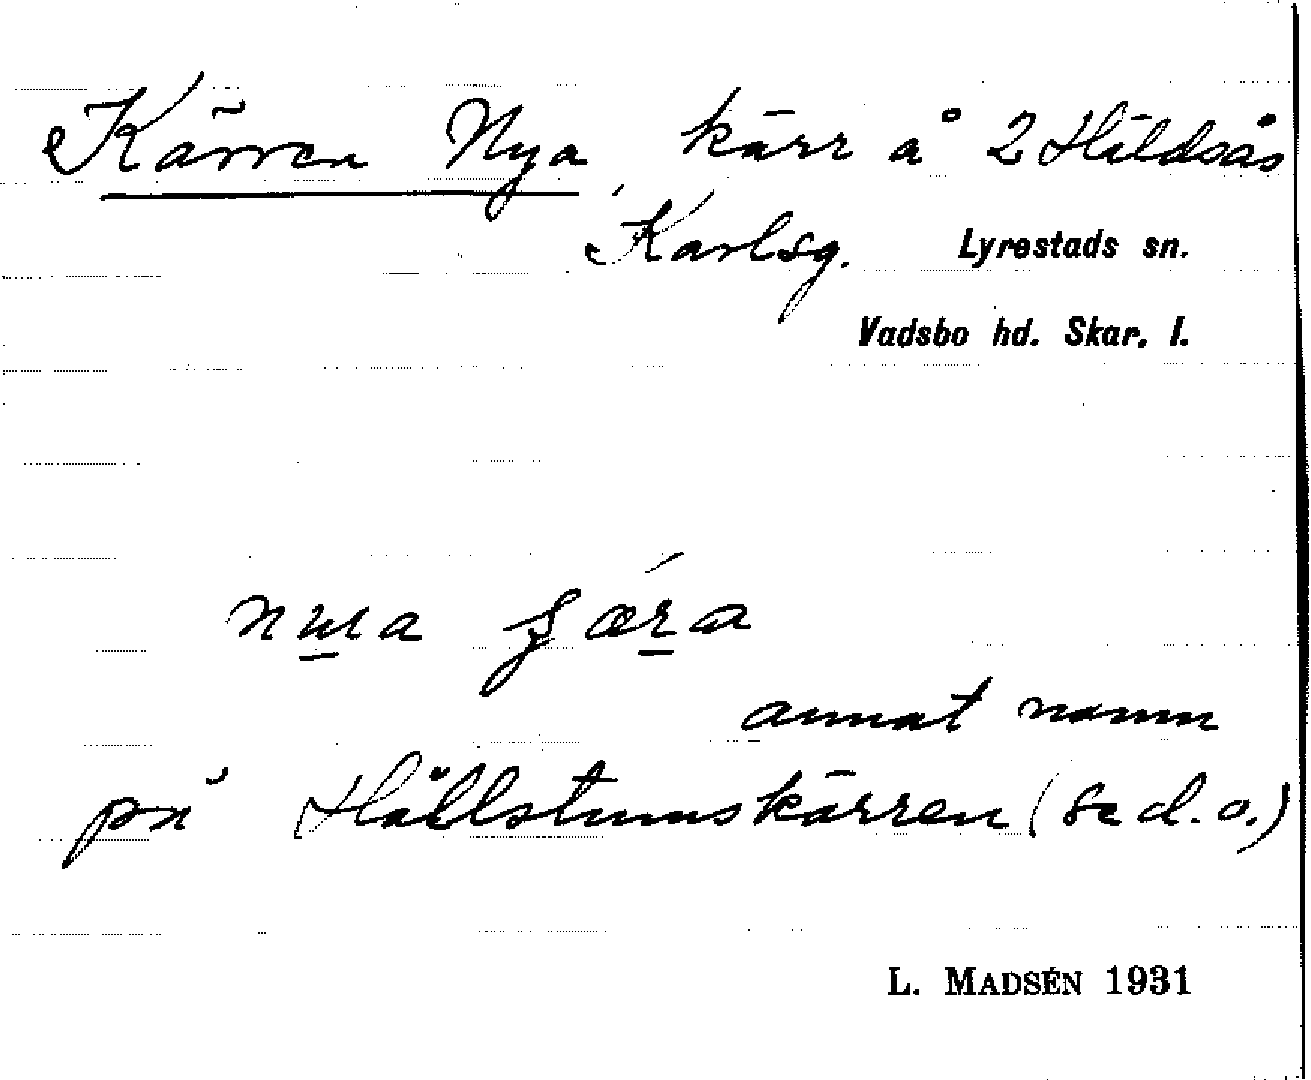 Kärren Nya, kärr å 2 Hildsås
Karlsg. Lyrestads sn.
Vadsbo hd. Skar. l.
annat namn
på Hällstumskärren (se d. o.)
L. MADSÉN 1931